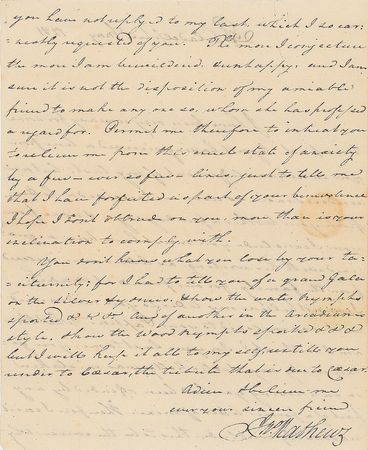 you have not reply'd to my last, which I so ear-
-nestly requested of you. The more I conjecture
the more I am bewildered & unhappy, and I am
sure it is not the disposition of my amiable
friend to make any one so, whom she has professed
a regard for. Permit me therefore to intreat you
to relieve me from this sad state of anxiety
by a few – ever so few – lines, just to tell me
that I have forfeited a part of your benevolence
I hope I don't obtrude on you, more than is your
inclination to comply with.
You don't know what you lose by your ta-
-citurnity; for I had to tell you of a grand Gala
on the silver & how the water Nymphs
sported & &c. And of another in the Arcadian
style. & how the Wood Nymphs sported & & &
but I will keep it all to myself till you
render to Cæsar, the tribute that is due to Cæsar.
Adieu & believe me
ever your sincere friend
Mathews